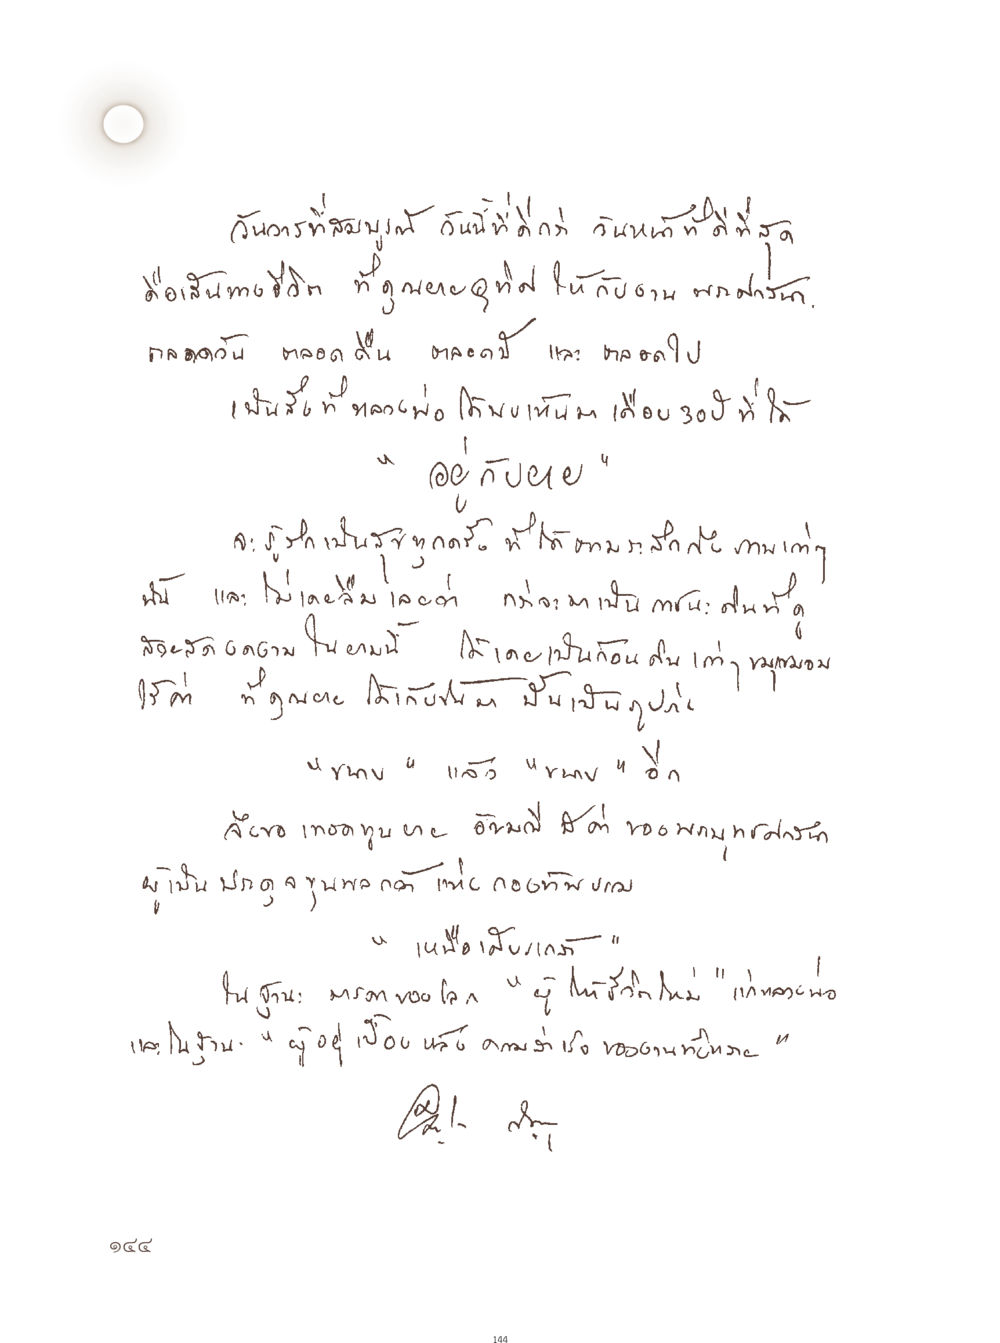 วันวารที่สมบูรณ์ วันนี้ที่ดีกว่า วันหน้าที่ดีที่สุด
คือเส้นทางชีวิต ที่คุณยายอุทิศ ให้กับงาน พระศาสนา.
ตลอดวัน ตลอดคืน ตลอดปี และ ตลอดไป
เป็นสิ่งที่หลวงพ่อ ได้พบเห็นมา เกือบ 30 ปี ที่ได้
" อยู่กับยาย "
จะรู้สึกเป็นสุขทุกครั้ง ที่ได้ตามระลึกถึง ภาพเก่าๆ
นั้น และ ไม่เคยลืมเลยว่า กว่าจะมาเป็น ภาชนะดินที่ดู
สวยสดงดงาม ในยามนี้ ได้เคยเป็นก้อนดิน เก่าๆ ขมุกขมอม
ไร้ค่า ที่คุณยาย ได้เก็บขึ้นมา ปั้นเป็นรูปร่าง
"ขนาบ" แล้ว "ขนาบ" อีก
จึงขอ เทอดทูน ยาย อัฐมณี มีค่า ของพระพุทธศาสนา
ผู้เป็น ประดุจ ขุนพลกล้า แห่ง กองทัพธรรม
" เหนือเศียรเกล้า "
ใน ฐานะ มารดาของโลก " ผู้ ให้ชีวิตใหม่ " แก่หลวงพ่อ
และ ในฐานะ " ผู้อยู่ เบื้องหลัง ความสำเร็จ ของงานทั้งหลาย "
๑๔๔
144